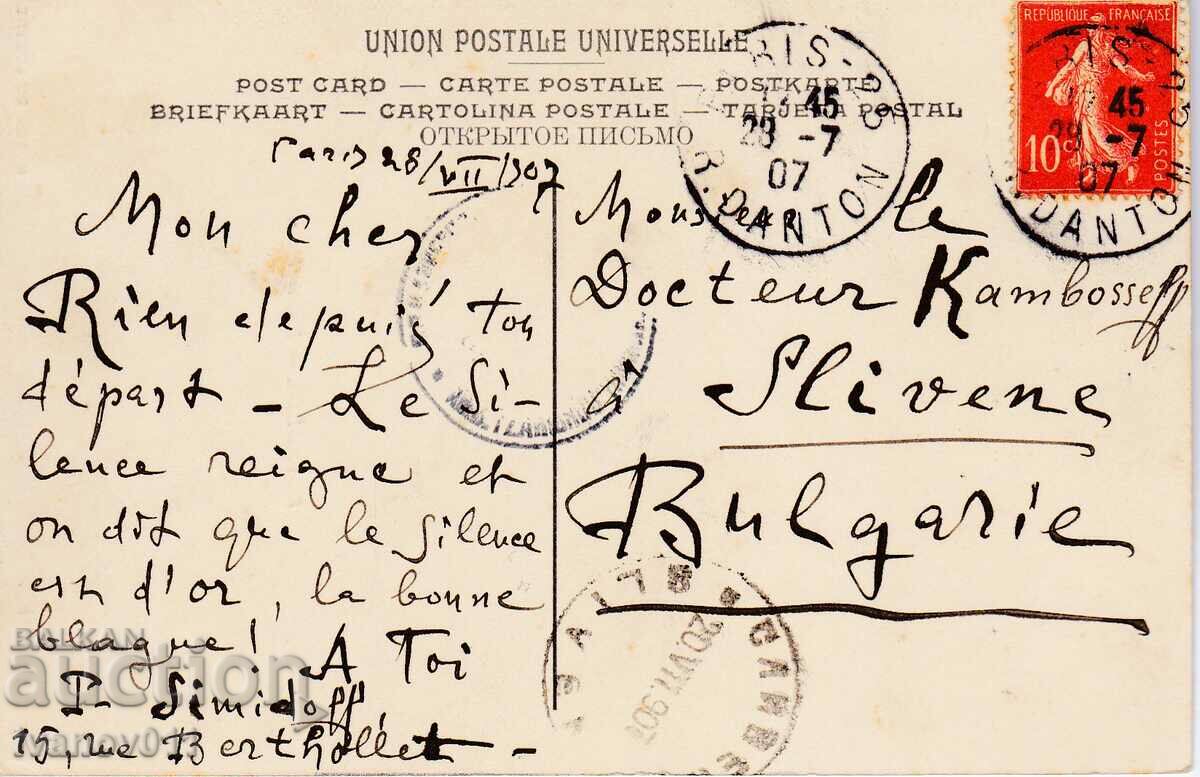 UNION POSTALE UNIVERSELLE
POST CARD — CARTE POSTALE — POSTKARTE
BRIEFKAART — CARTOLINA POSTALE — TARJETA POSTAL
ОТКРЫТОЕ ПИСЬМО
RÉPUBLIQUE FRANÇAISE
10c
POSTES
45
29 -7
07
R. DANTON
45
29 -7
07
R. DANTON
Paris 28/VII/907
Mon cher
Rien depuis ton
départ — Le Si-
lence reigne et
on dit que le silence
est d'or, la bonne
blague! A Toi
P. Simidoff
15, rue Berthollet —
Monsieur le
Docteur Kambosseff
à Slivene
Bulgarie
BALKAN
auction